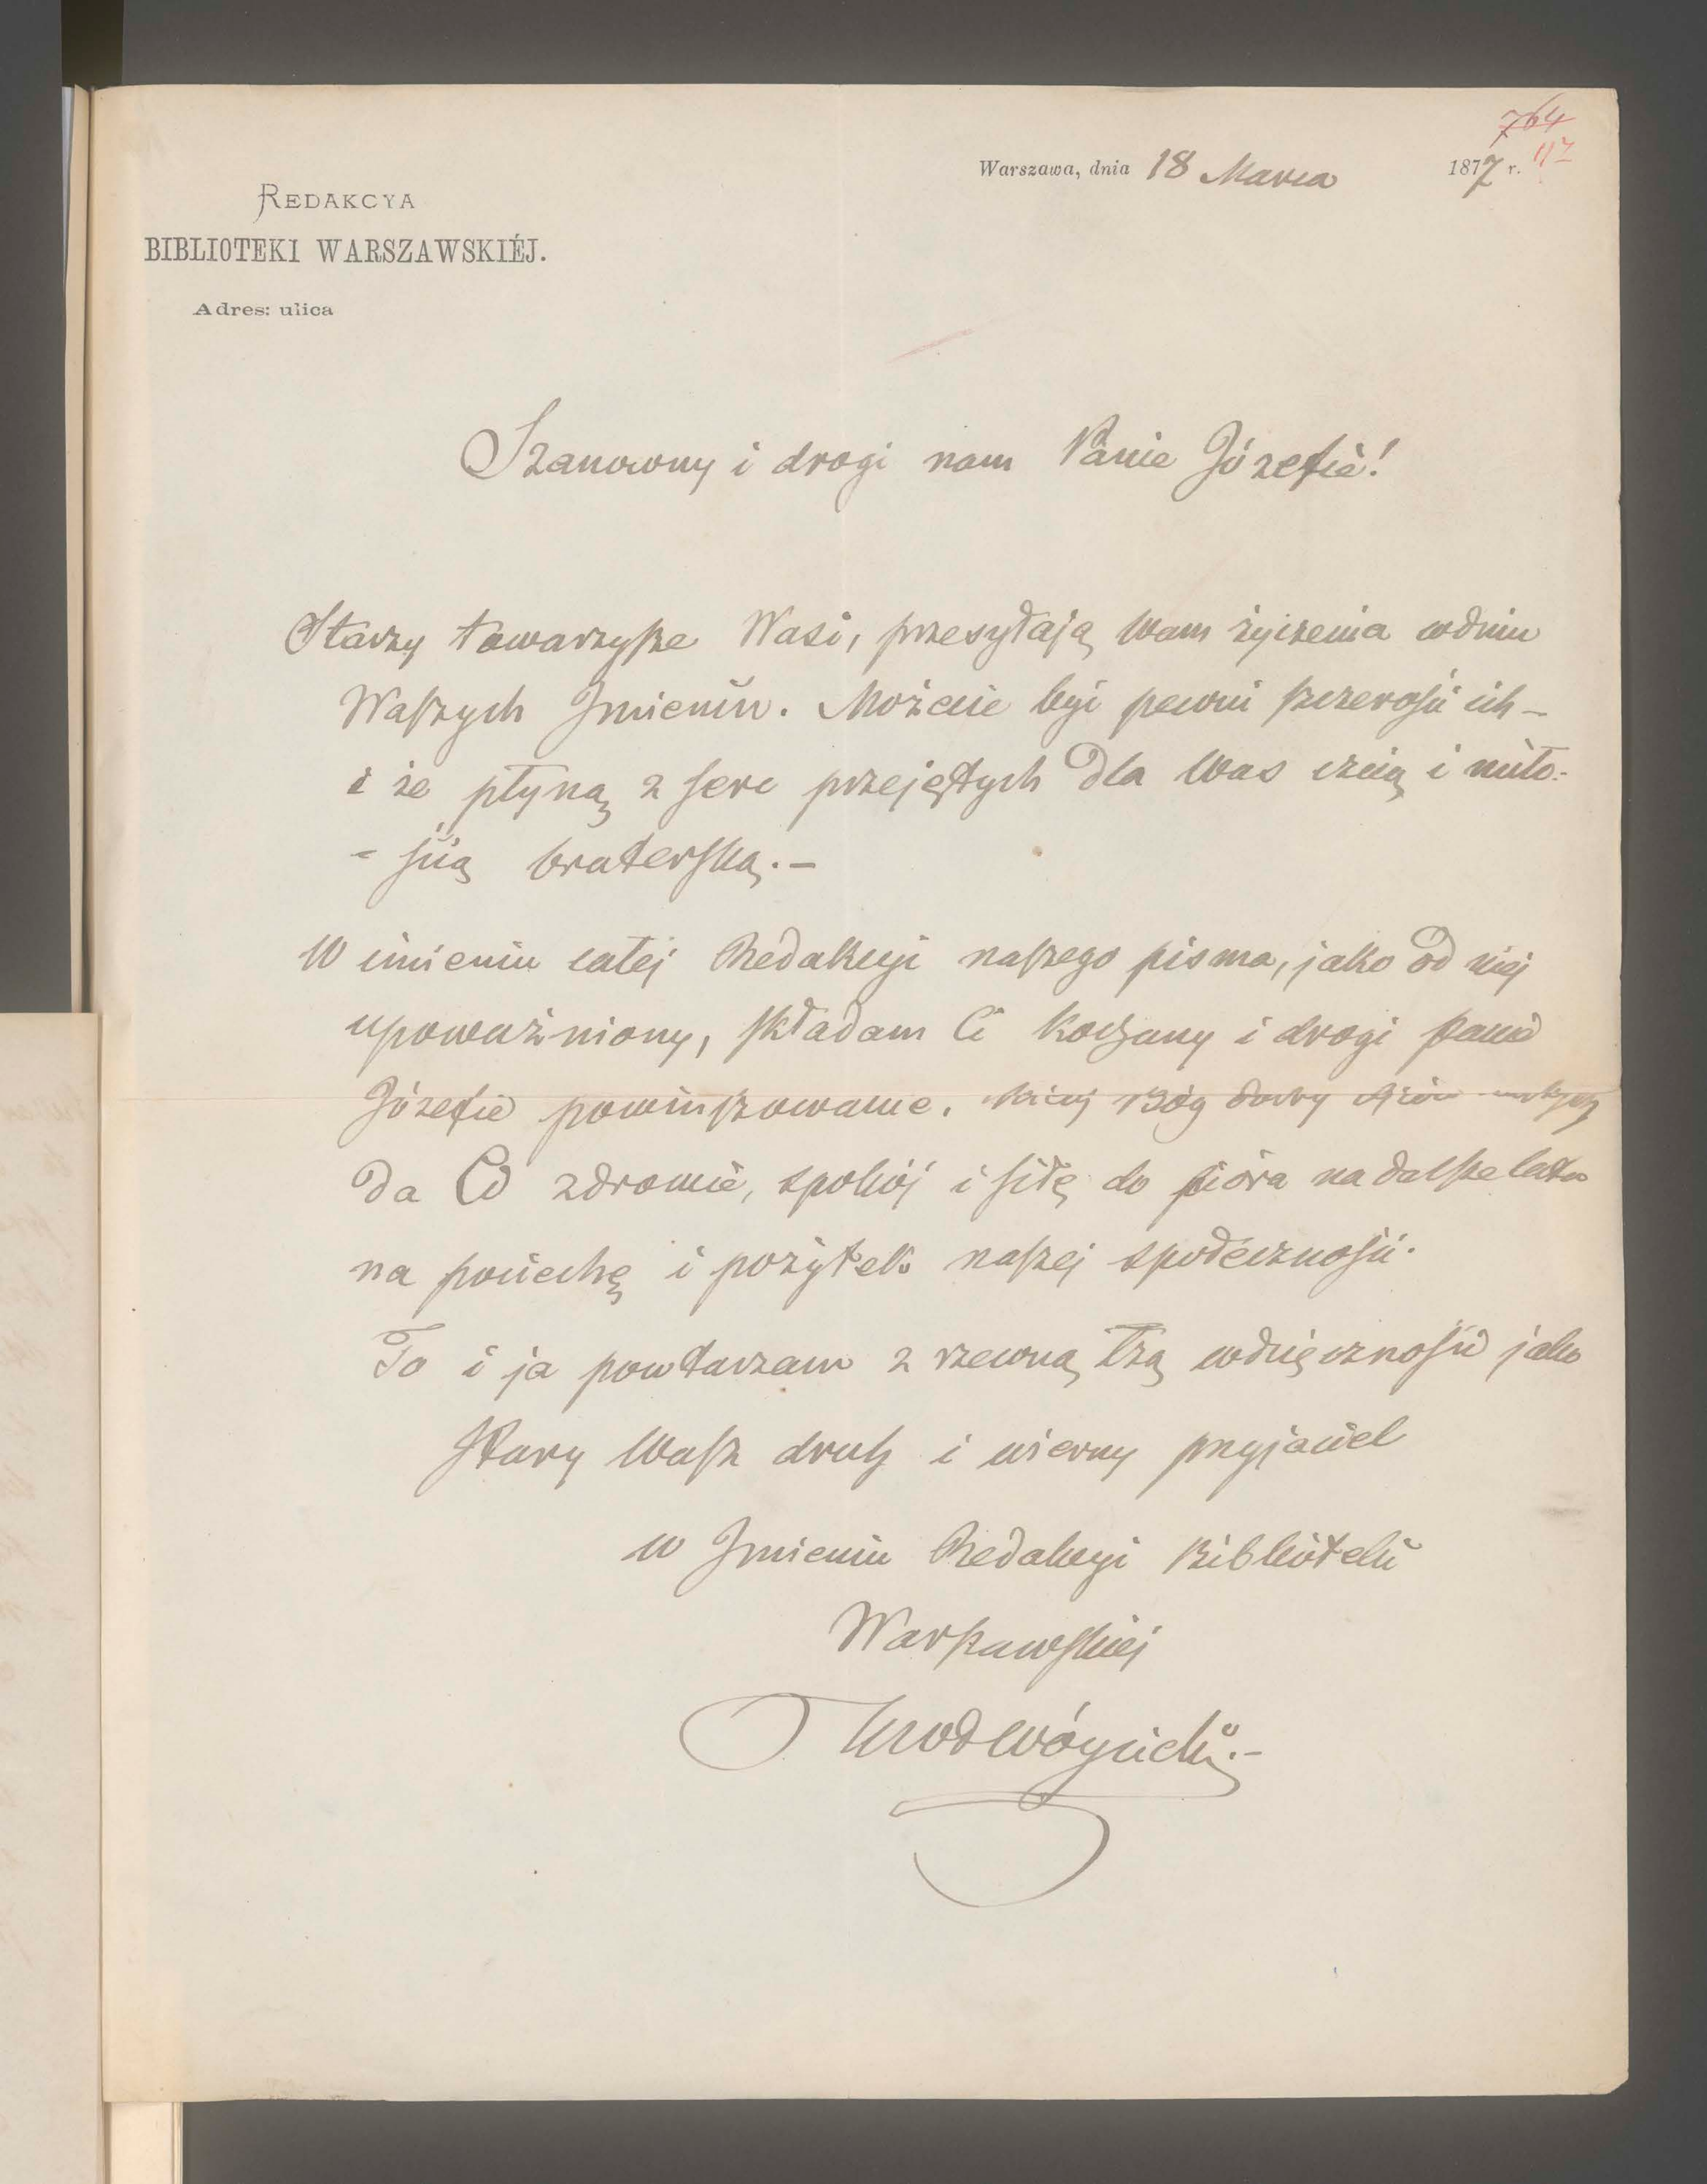 764
117
Warszawa, dnia 18 Marca 1877 r.
REDAKCYA
BIBLIOTEKI WARSZAWSKIÉJ.
Adres: ulica
Szanowny i drogi nam Panie Józefie!
Starzy towarzysze Wasi, przesyłają Wam życzenia w dniu
Waszych Imienin. Możecie być pewni szczerości ich –
i że płyną z serc przejętych dla Was czcią i miło-
- ścią braterską. –
W imieniu całej Redakcyi naszego pisma, jako od niej
upoważniony, składam Ci kochany i drogi Panie
Józefie powinszowanie. Niechaj Bóg dobry Ojciec
da Ci zdrowie, spokój i siłę do pióra na dalsze lata
na pociechę i pożytek naszej społeczności.
To i ja powtarzam z rzewną łzą wdzięczności jako
Stary Wasz druh i wierny przyjaciel
w Imieniu Redakcyi Biblioteki
Warszawskiej
KWł Wóycicki. –